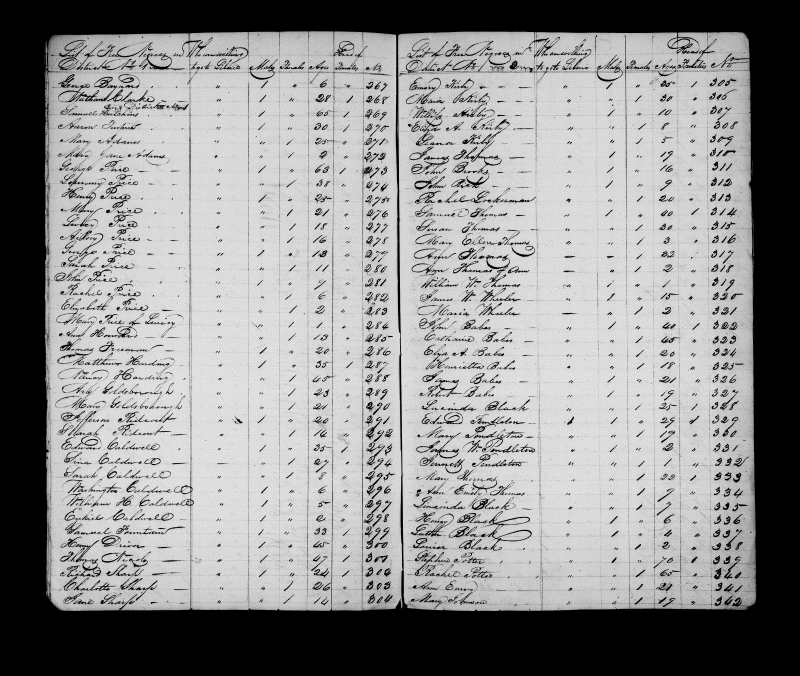 List of Free Negroes in Who are willing Heads of
District No 4 to go to Liberia Males Females Ages Families No
George " 1 " 6 " 267
Clarke " 1 " 28 1 268
Samuel Hutchins " 1 " 65 1 269
Aaron " 1 " 30 1 270
Mary Adams " " 1 25 " 271
Jane Adams " " 1 2 " 272
George Price " 1 " 63 1 273
Price " 1 " 38 " 274
Henry Price " 1 " 25 " 275
Mary Price " " 1 21 " 276
Price " " 18 " 277
Price " 16 " 278
George Price " 1 " 13 " 279
Sarah Price " " 1 11 " 280
John Price " 1 " 9 " 281
Rachel Price " " 1 6 " 282
Elizabeth Price " " 1 2 " 283
Mary Price of " " 1 1 " 284
Ann " 1 13 " 285
Thomas Freeman " 1 " 20 " 286
Matthew Harding " 1 " 35 1 287
Harding " " 1 45 " 288
Goldsborough " " 1 23 " 289
Mary Goldsborough " " 1 21 " 290
Jefferson Rideout " 1 " 20 " 291
Sarah Rideout " " 1 16 " 292
Edward Caldwell " 1 " 35 1 293
Caldwell " " 1 27 " 294
Sarah Caldwell " " 1 8 " 295
Washington Caldwell " 1 " 6 " 296
William H. Caldwell " 1 " 5 " 297
Ezekiel Caldwell " 1 " 2 " 298
Samuel Fountain " 1 " 33 1 299
Henry Dixon " 1 " 45 " 300
Thomas " 1 " 47 1 301
Richard Sharp " 1 " 24 1 302
Charlotte Sharp " " 1 26 " 303
Sharp " " 1 14 " 304
List of Free Negroes in Who are willing Heads of
District No 1 to go to Liberia Males Females Ages Families No
Emory Kirby " 1 " 35 1 305
Maria Kirby " " 1 30 " 306
Kirby " 1 " 10 " 307
Eliza A. Kirby " " 1 8 " 308
Kirby " " 1 5 " 309
James Thomas " 1 " 19 " 310
John Brooks " 1 " 16 " 311
John " 1 " 9 " 312
Rachel Lockerman " " 1 20 " 313
Samuel Thomas " 1 " 40 1 314
Susan Thomas " " 1 30 " 315
Mary Ellen Thomas " " 1 3 " 316
Ann Thomas 22 " 317
Ann Thomas of Ann " " 1 2 " 318
William W. Thomas " 1 " 1 " 319
James W. Wheeler " 1 " 15 " 320
Maria Wheeler 1 2 " 321
Babes " 1 " 40 1 322
Catharine Babes " " 1 45 " 323
Eliza A. Babes " " 1 20 " 324
Henrietta Babes " " 1 18 " 325
James Babes " 1 " 21 " 326
Robert Babes " 1 " 19 " 327
Lucinda Black " " 1 25 1 328
Edward Pendleton " 1 " 29 1 329
Mary Pendleton " " 1 17 " 330
James W. Pendleton " 1 " 2 " 331
Pendleton " " 1 1 " 332
Mary Thomas " " 1 22 1 333
Ann Emily Thomas " " 1 9 " 334
Lucinda Black " " 1 7 " 335
Henry Black " 1 " 6 " 336
Black " 1 " 4 " 337
Black " " 1 2 " 338
Stephen Potter " 1 " 70 1 339
Rachel Potter " " 1 65 " 340
Ann Emory " " 1 24 " 341
Mary Johnson " " 1 19 " 342